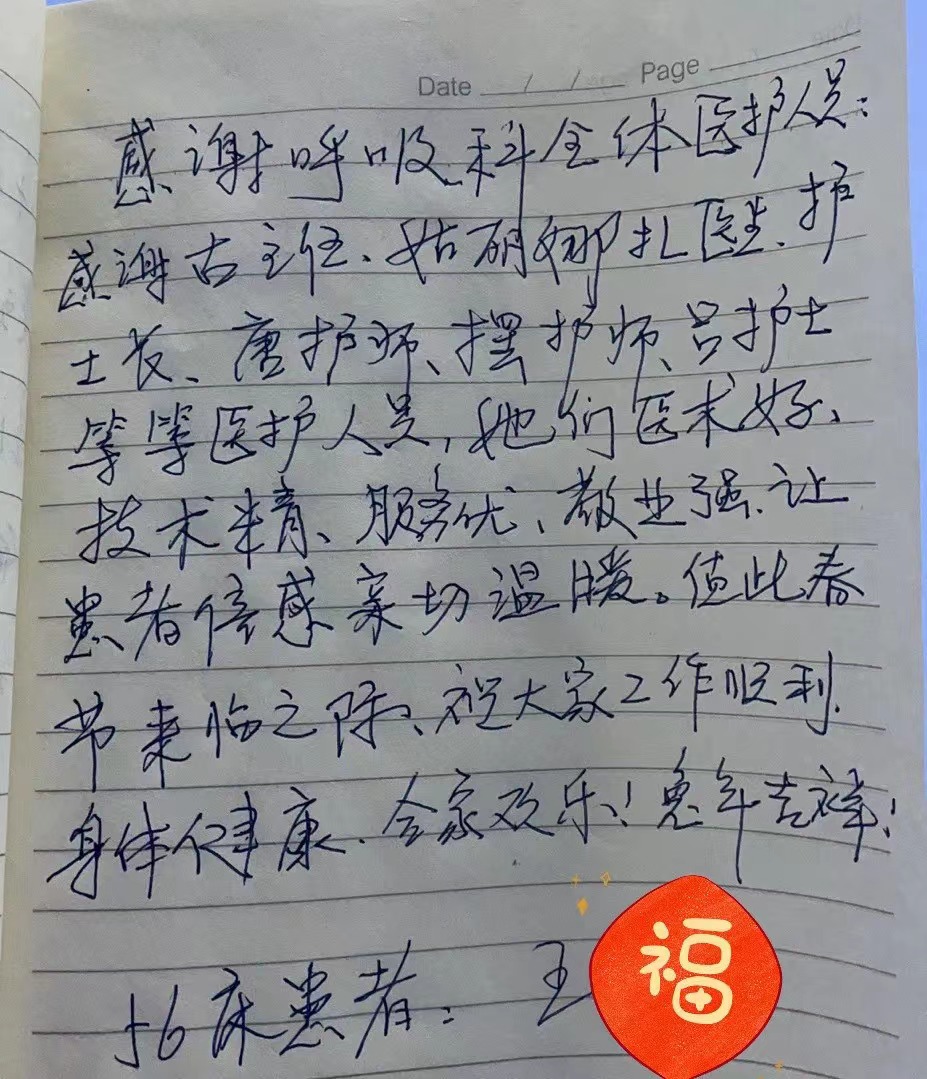 Date / / Page
感谢呼吸科全体医护人员:
感谢古主任、姑丽娜扎医生、护
士长、唐护师、摆护师、吕护士
等等医护人员,她们医术好、
技术精、服务优、敬业强、让
患者倍感亲切温暖。值此春
节来临之际、祝大家工作顺利
身体健康、全家欢乐!兔年吉祥!
56床患者:王
福